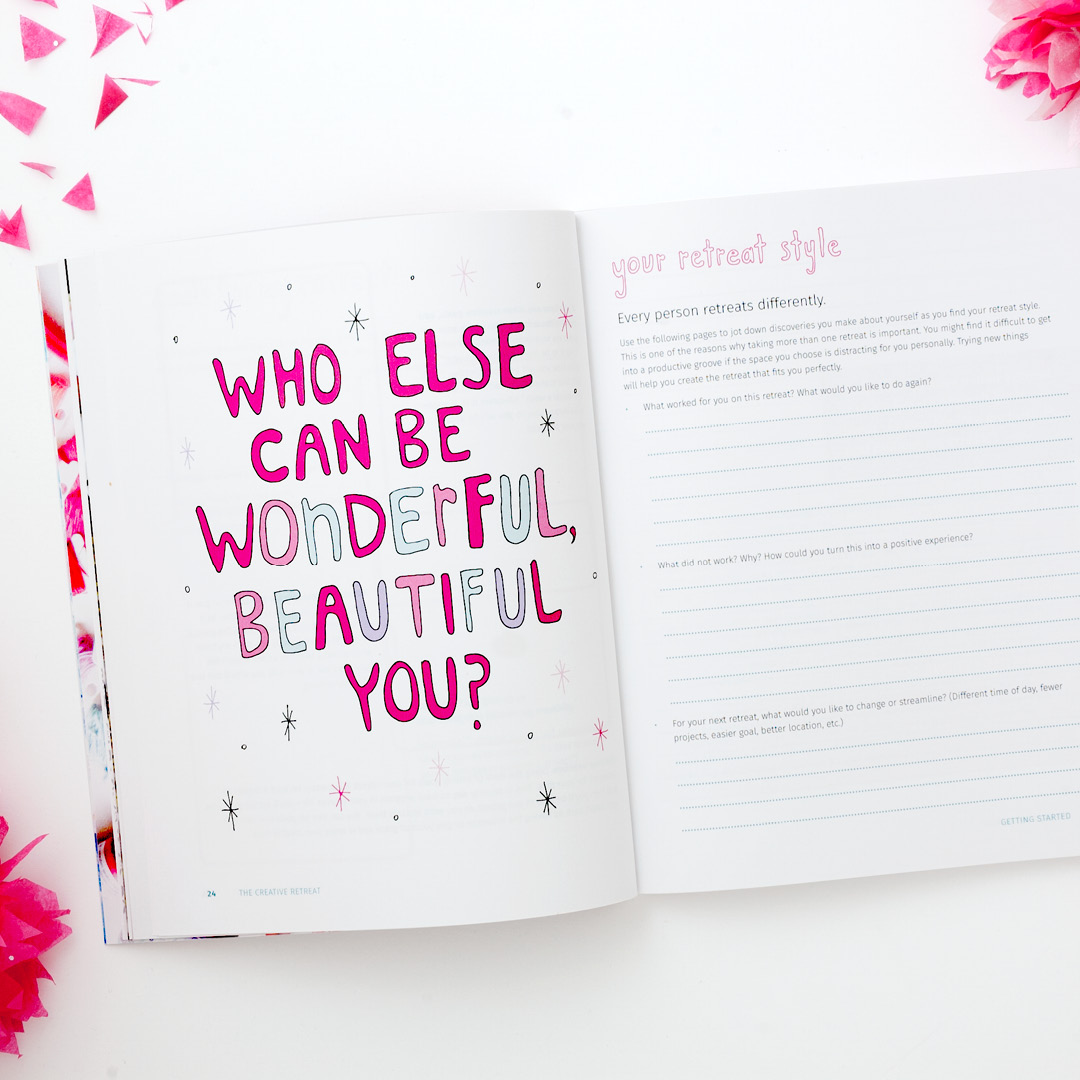 WHO ELSE
CAN BE
WOnDErFUL,
BEAUTIFUL
YOU?
24 THE CREATIVE RETREAT
your retreat style
Every person retreats differently.
Use the following pages to jot down discoveries you make about yourself as you find your retreat style.
This is one of the reasons why taking more than one retreat is important. You might find it difficult to get
into a productive groove if the space you choose is distracting for you personally. Trying new things
will help you create the retreat that fits you perfectly.
· What worked for you on this retreat? What would you like to do again?
· What did not work? Why? How could you turn this into a positive experience?
· For your next retreat, what would you like to change or streamline? (Different time of day, fewer
projects, easier goal, better location, etc.)
GETTING STARTED